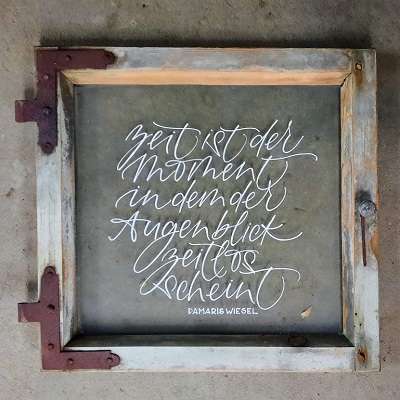 Zeit ist der
Moment
in dem der
Augenblick
zeitlos
scheint
DAMARIS WIEGEL